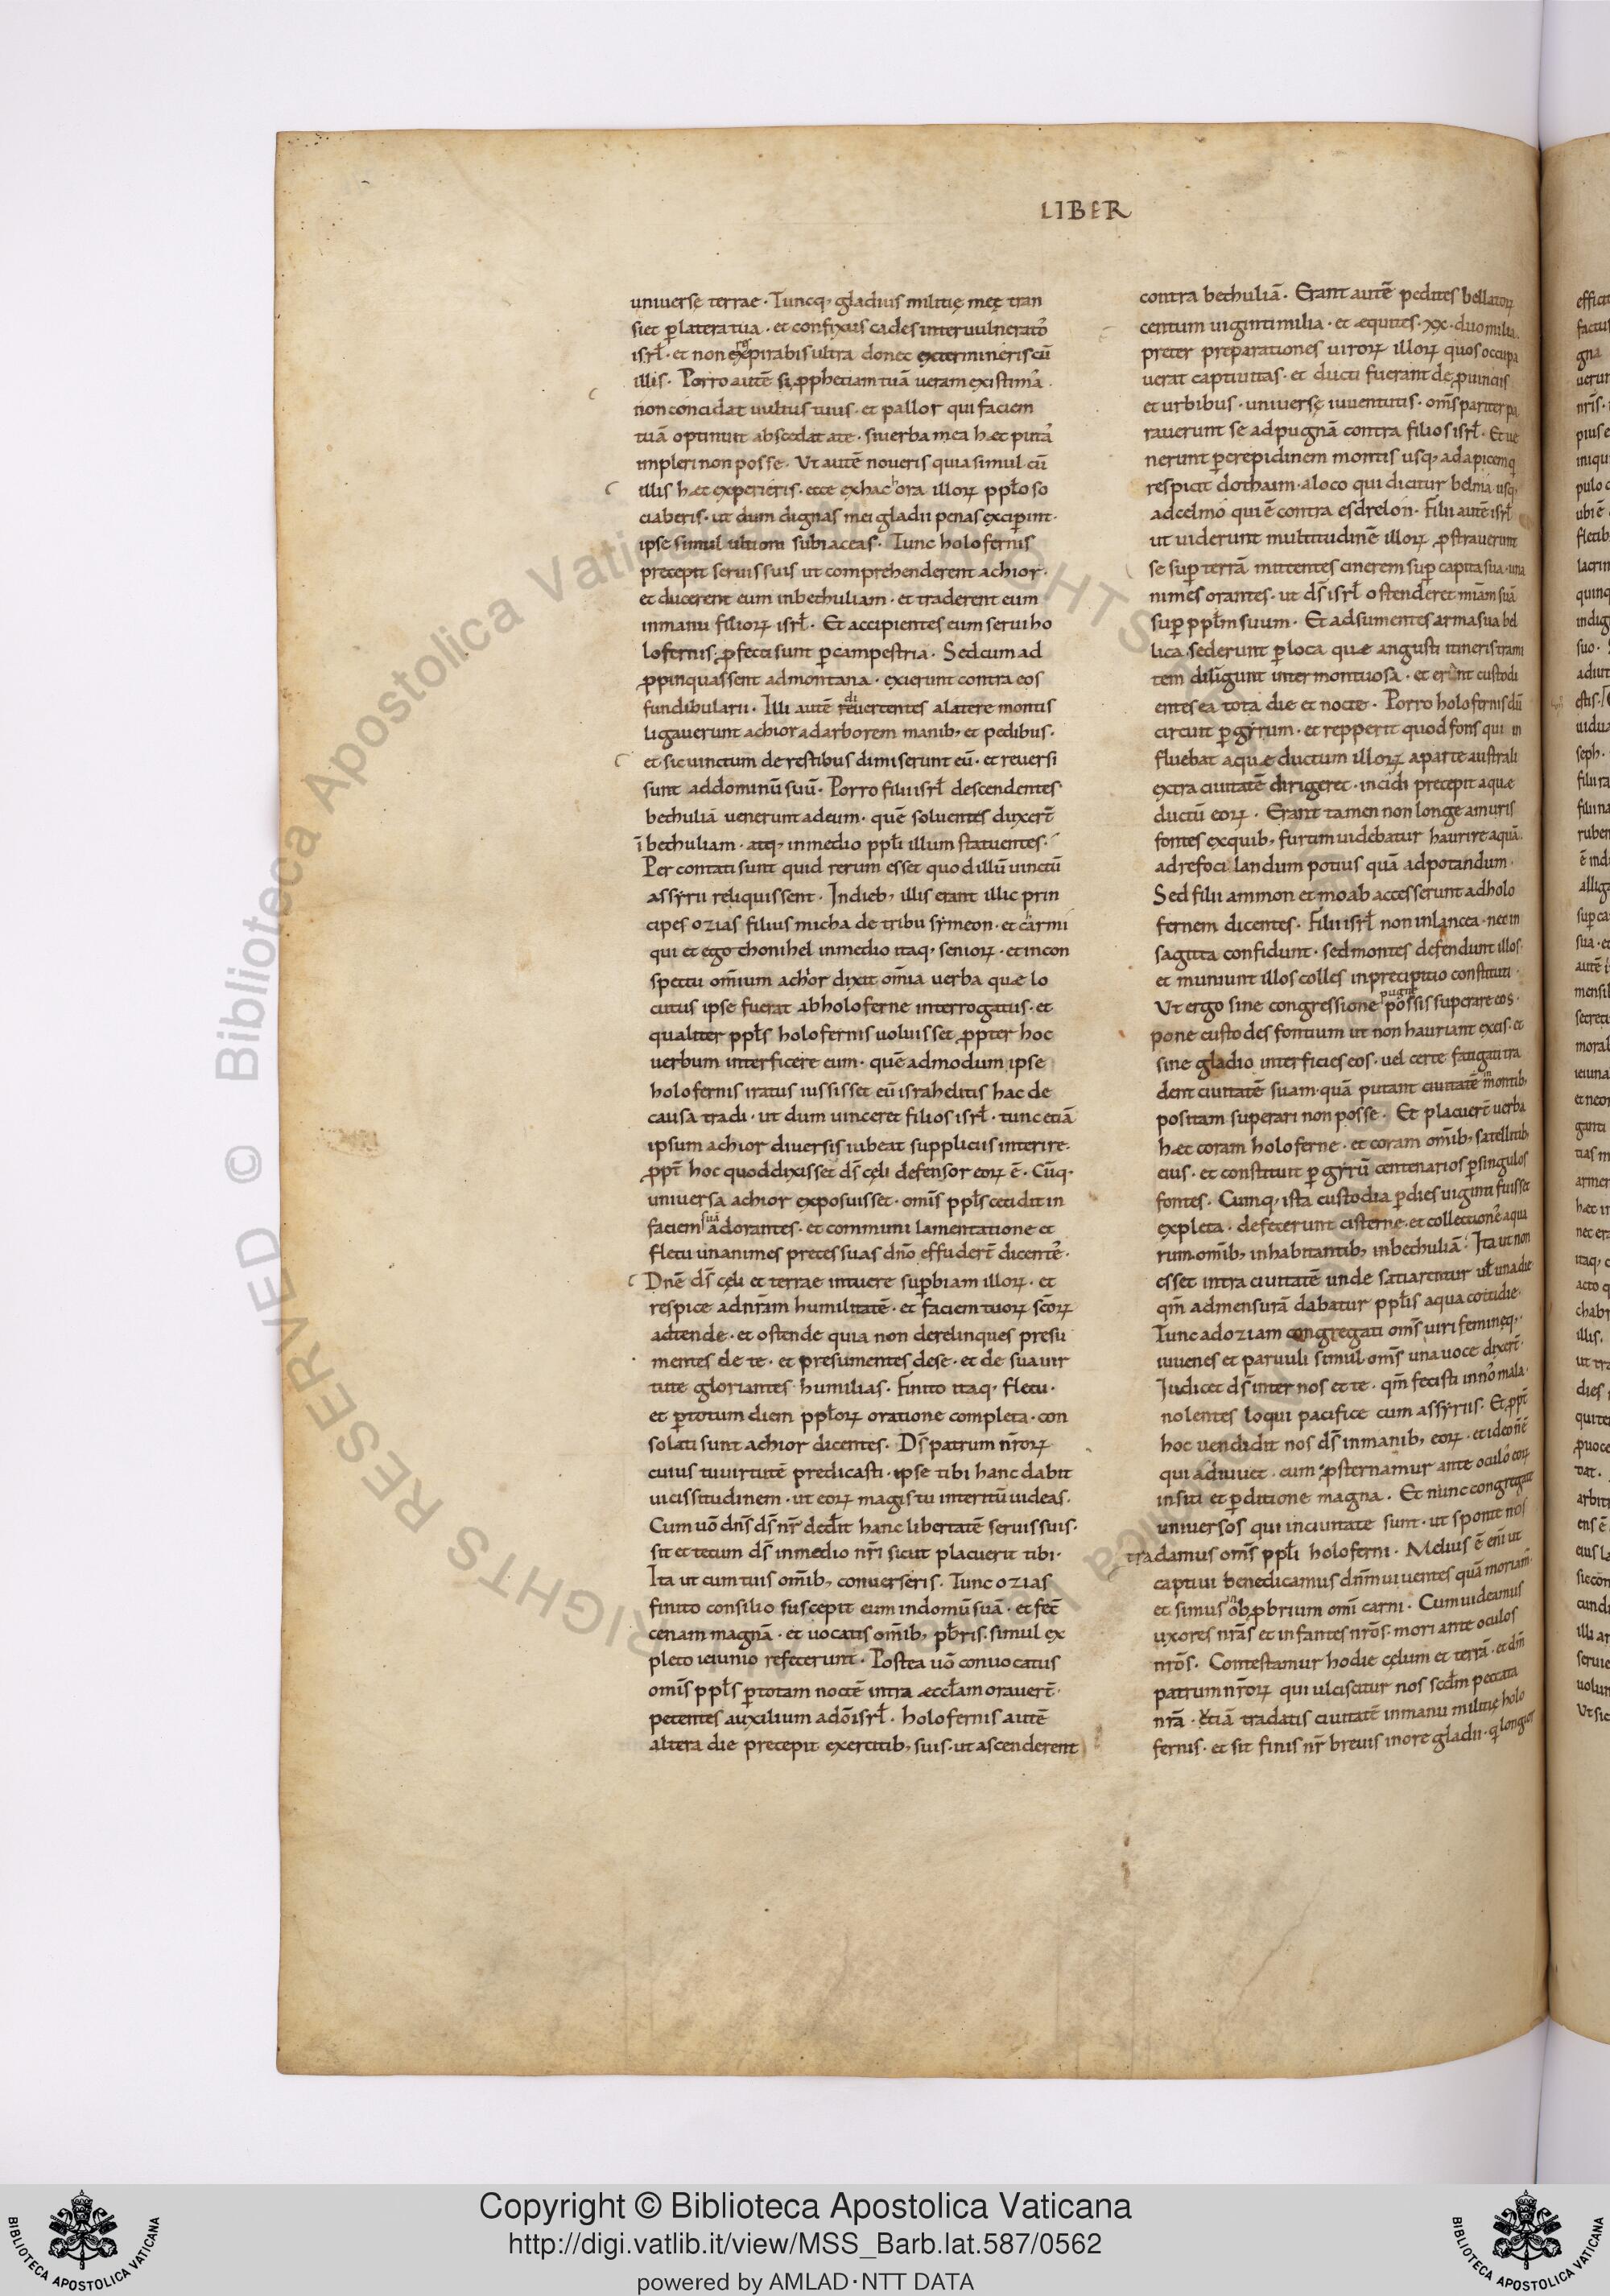 LIBER
uniuersę terrae · Tuncq; gladius militię meę tran
siet p̱ latera tua · et confixus cades inter uulnerato᷒
isrł · et non respirabis ultra donec extermineris cū
illis · Porro autē si ꝓphetiam tuā ueram existima᷒ ·
non concidat uultus tuus · et pallor qui faciem
tuā optinuit abscedat ate · si uerba mea hæc puta᷒
impleri non posse · Ut autē noueris quia simul cū
illis hæc experieris · ecce ex hac hora illorꝝ ppło so
ciaberis · ut dum dignas mei gladii penas excip̱int ·
ipse simul ultioni subiaceas · Tunc holofernis
precepit seruis suis ut comprehenderent achior ·
et ducerent eum in bethuliam · et traderent eum
in manu filiorꝝ isrł · Et accipientes eum serui ho
lofernis · ꝓfecti sunt p̱ campestria · Sed cum ad
ꝓpinquassent ad montana · exierunt contra eos
fundibularii · Illi autē diuertentes a latere montis
ligauerunt achior ad arborem manib; et pedibus ·
et sic uinctum de restibus dimiserunt eū · et reuersi
sunt ad dominū suū · Porro filii isrł descendentes
bethuliā uenerunt ad eum · quē soluentes duxer̄t
ī bethuliam · atq; in medio ppłi illum statuentes ·
Per contati sunt quid rerum esset quod illū uinctū
assyrii reliquissent · In dieb; illis erant illic prin
cipes ozias filius micha de tribu symeon · et carmi
qui et ego thonihel in medio itaq; seniorꝝ · et in con
spectu om̄ium achior dixit om̄ia uerba quæ lo
cutus ipse fuerat ab holoferne interrogatus · et
qualiter ppłs holofernis uoluisset ꝓpter hoc
uerbum interficere eum · quē admodum ipse
holofernis iratus iussisset eū israhelitis hac de
causa tradi · ut dum uinceret filios isrł · tunc etiā
ipsum achior diuersis iubeat suppliciis interire ·
ꝓpt̄ hoc quod dixisset dꝭ cęli defensor eorꝝ ē · Cūq;
uniuersa achior exposuisset · om̄s ppłs cecidit in
faciem suā adorantes · et communi lamentatione et
fletu unanimes preces suas dn̄o effuder̄t dicente᷒ ·
Dn̄e dꝭ cęli et terrae intuere sup̱biam illorꝝ · et
respice ad nr̄am humilitatē · et faciem tuorꝝ sc̄orꝝ
adtende · et ostende quia non derelinques presu
mentes de te · et presumentes de se · et de sua uir
tute gloriantes humilias · Finito itaq; fletu ·
et p̱ totum diem ppłorꝝ oratione completa · con
solati sunt achior dicentes · Dꝭ patrum nr̄orꝝ
cuius tu uirtutē predicasti · ipse tibi hanc dabit
uicissitudinem · ut eorꝝ magis tu interitū uideas ·
Cum uō dn̄s dꝭ nr̄ dederit hanc libertatē seruis suis ·
sit et tecum dꝭ in medio nr̄i sicut placuerit tibi ·
Ita ut cum tuis om̄ib; conuerseris · Tunc ozias
finito consilio suscepit eum in domū suā · et fec̄
cenam magnā · et uocatis om̄ib; pb̄ris · simul ex
pleto ieiunio refecerunt · Postea uō conuocatus
om̄is ppłs p̱ totam noctē intra æccłam orauer̄t ·
petentes auxilium a dō isrł · holofernis autē
altera die precepit exercitib; suis · ut ascenderent
contra bethuliā · Erant autē pedites bellatorꝝ
centum uiginti milia · et æquites · xx · duo milia ·
preter preparationes uirorꝝ illorꝝ quos occupa
uerat captiuitas · et ducti fuerant de ꝓuinciis
et urbibus · uniuersę iuuentutis · om̄s pariter pa
rauerunt se ad pugnā contra filios isrł · Et ue
nerunt p̱ crepidinem montis usq; ad apicem q
respicit dothaim · a loco qui dicitur belma · usq;
ad celmo qui ē contra esdrelon · Filii autē isrł
ut uiderunt multitudinē illorꝝ ꝓstrauerunt
se sup̱ terrā mittentes cinerem sup̱ capita sua · una
nimes orantes · ut dꝭ isrł ostenderet mīam suā
sup̱ ppłm suum · Et adsumentes arma sua bel
lica · sederunt p̱ loca quæ angusti itineris trami
tem diligunt inter montuosa · et erant custodi
entes ea tota die et nocte · Porro holofernis dū
circuit p̱ gyrum · et repperit quod fons qui in
fluebat aquæ ductum illorꝝ a parte australi
extra ciuitatē dirigeret · incidi precepit aquæ
ductū eorꝝ · Erant tamen non longe a muris
fontes ex quib; furtim uidebatur haurire aquā ·
ad refocilandum potius quā ad potandum ·
Sed filii ammon et moab accesserunt ad holo
fernem dicentes · Filii isrł non in lancea · nec in
sagitta confidunt · sed montes defendunt illos ·
et muniunt illos colles in precipitio constituti ·
Ut ergo sine congressione pugnę possis superare eos ·
pone custodes fontium ut non hauriant ex eis · et
sine gladio interficies eos · uel certe fatigati tra
dent ciuitatē suam · quā putant ciuitatē in montib;
positam superari non posse · Et placuer̄t uerba
hæc coram holoferne · et coram om̄ib; satellitib;
eius · et constituit p̱ gyrū centenarios p̱ singulos
fontes · Cumq; ista custodia p̱ dies uiginti fuisset
expleta · defecerunt cisterne · et collectione᷒ aqua
rum om̄ib; inhabitantib; in bethuliā · Ita ut non
esset intra ciuitatē unde satiarentur uł una die
qm̄ ad mensurā dabatur ppłis aqua cottidie ·
Tunc ad oziam congregati om̄s uiri feminęq; ·
iuuenes et paruuli simul om̄s una uoce dixer̄t ·
Iudicet dꝭ inter nos et te · qm̄ fecisti in no᷒ mala ·
nolentes loqui pacifice cum assyriis · Et ꝓpt̄
hoc uendidit nos dꝭ in manib; eorꝝ · et ideo n̄ ē
qui adiuuet · cum ꝓsternamur ante oculo᷒ eorꝝ
in siti et p̱ditione magna · Et nunc congregate
uniuersos qui in ciuitate sunt · ut sponte nos
tradamus om̄s ppłi holoferni · Melius ē eni᷒ ut
captiui benedicamus dn̄m uiuentes quā moriam᷒ ·
et simus in obꝓbrium om̄i carni · Cum uideamus
uxores nr̄as et infantes nr̄os · mori ante oculos
nr̄os · Contestamur hodie cęlum et terrā · et dm̄
patrum nr̄orꝝ qui ulciscitur nos scd̄m peccata
nr̄a · Etiā tradatis ciuitatē in manu militię holo
fernis · et sit finis nr̄ breuis in ore gladii · q longior
Copyright © Biblioteca Apostolica Vaticana
http://digi.vatlib.it/view/MSS_Barb.lat.587/0562
powered by AMLAD·NTT DATA
BIBLIOTECA APOSTOLICA VATICANA
BIBLIOTECA APOSTOLICA VATICANA